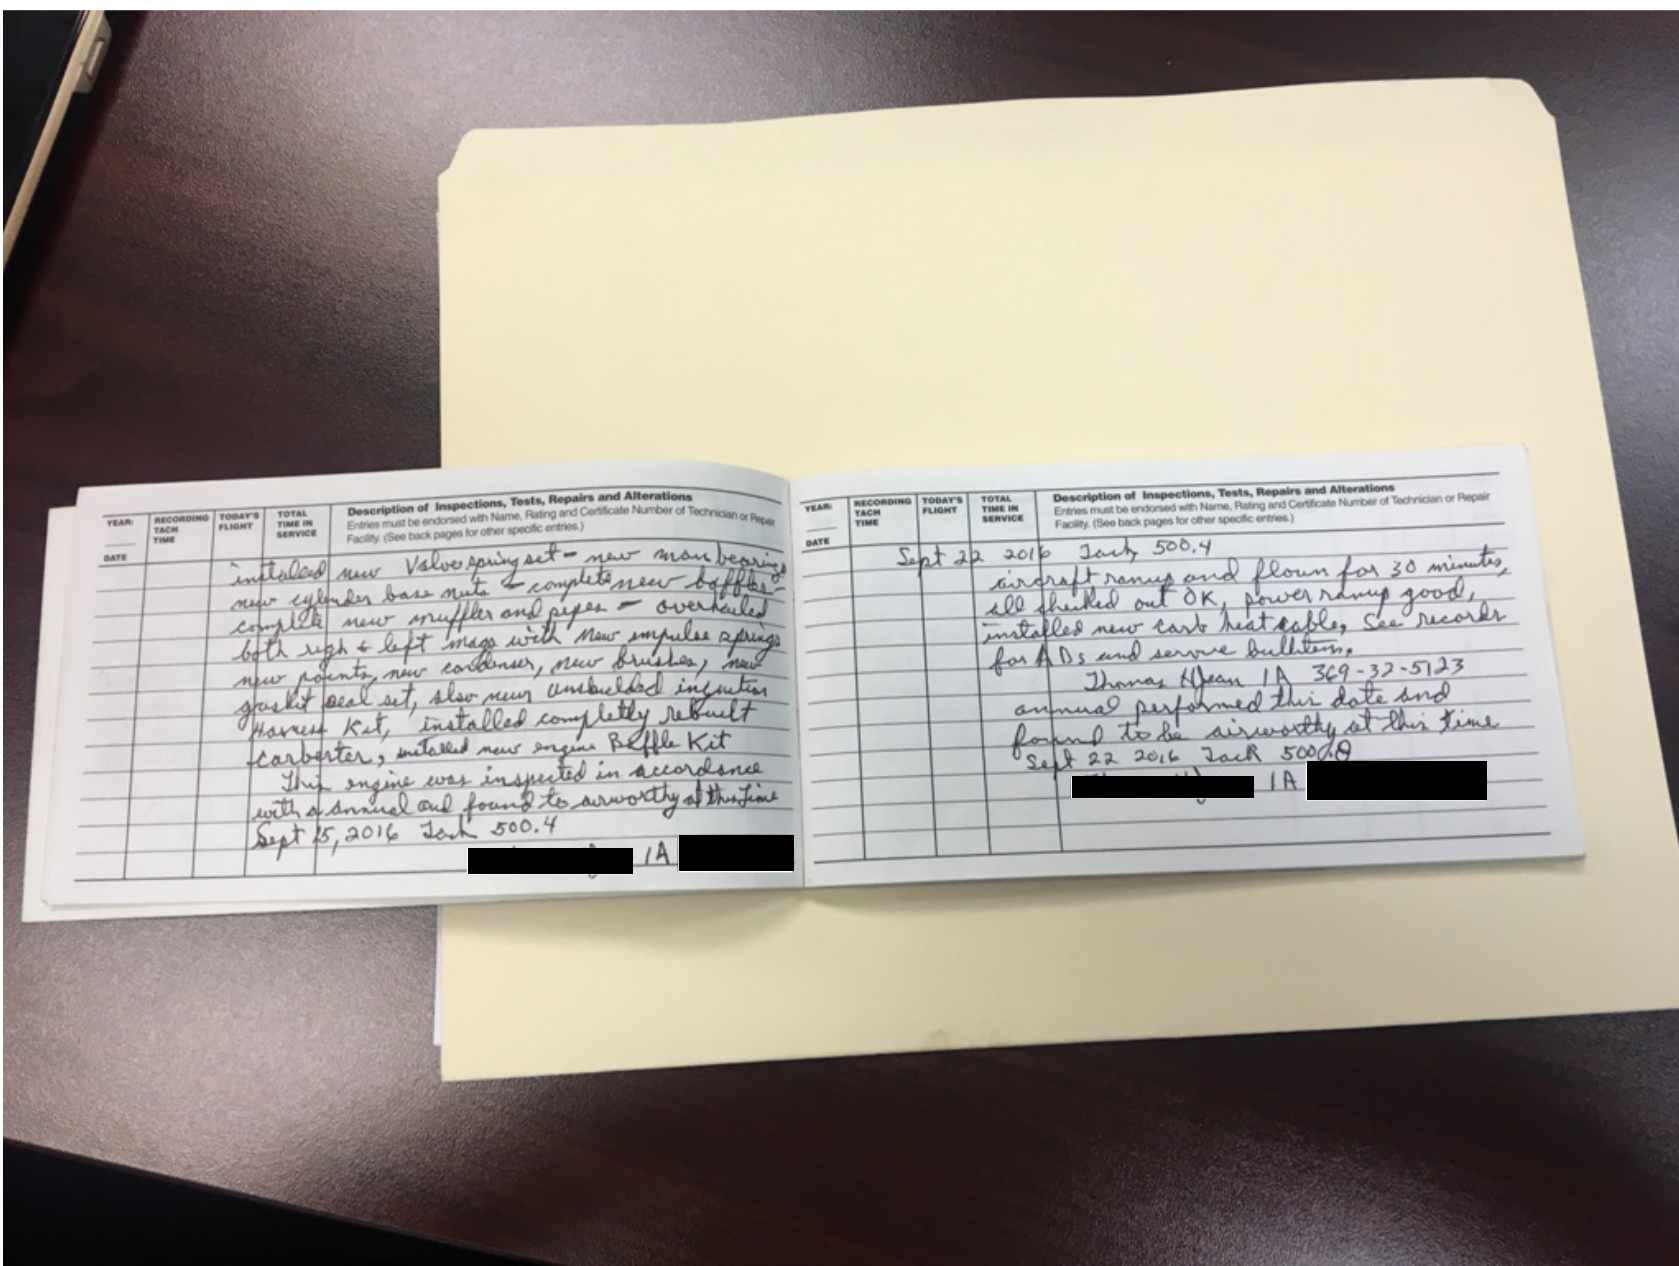 YEAR: RECORDING TACH TIME TODAY'S FLIGHT TOTAL TIME IN SERVICE
DATE
Description of Inspections, Tests, Repairs and Alterations
Entries must be endorsed with Name, Rating and Certificate Number of Technician or Repair
Facility. (See back pages for other specific entries.)
installed new Valve spring set - new main bearings
new cylinder base nuts - complete new baffles -
complete new muffler and pipes - overhauled
both righ & left mags with new impulse springs
new points, new condenser, new brushes, new
gaskit seal set, also new ignition
Harness Kit, installed completly rebuilt
carberter, installed new engine Baffle Kit
This engine was inspected in accordance
with a annual and found to airworthy at this time
Sept 15, 2016 Tach 500.4
IA
YEAR: RECORDING TACH TIME TODAY'S FLIGHT TOTAL TIME IN SERVICE
DATE
Description of Inspections, Tests, Repairs and Alterations
Entries must be endorsed with Name, Rating and Certificate Number of Technician or Repair
Facility. (See back pages for other specific entries.)
Sept 22 2016 Tach 500.4
aircraft runup and flown for 30 minutes,
all checked out OK, power runup good,
installed new carb heat cable, See records
for ADs and service
Thomas IA 369-32-5123
annual performed this date and
found to be airworthy at this time
Sept 22 2016 Tach
IA